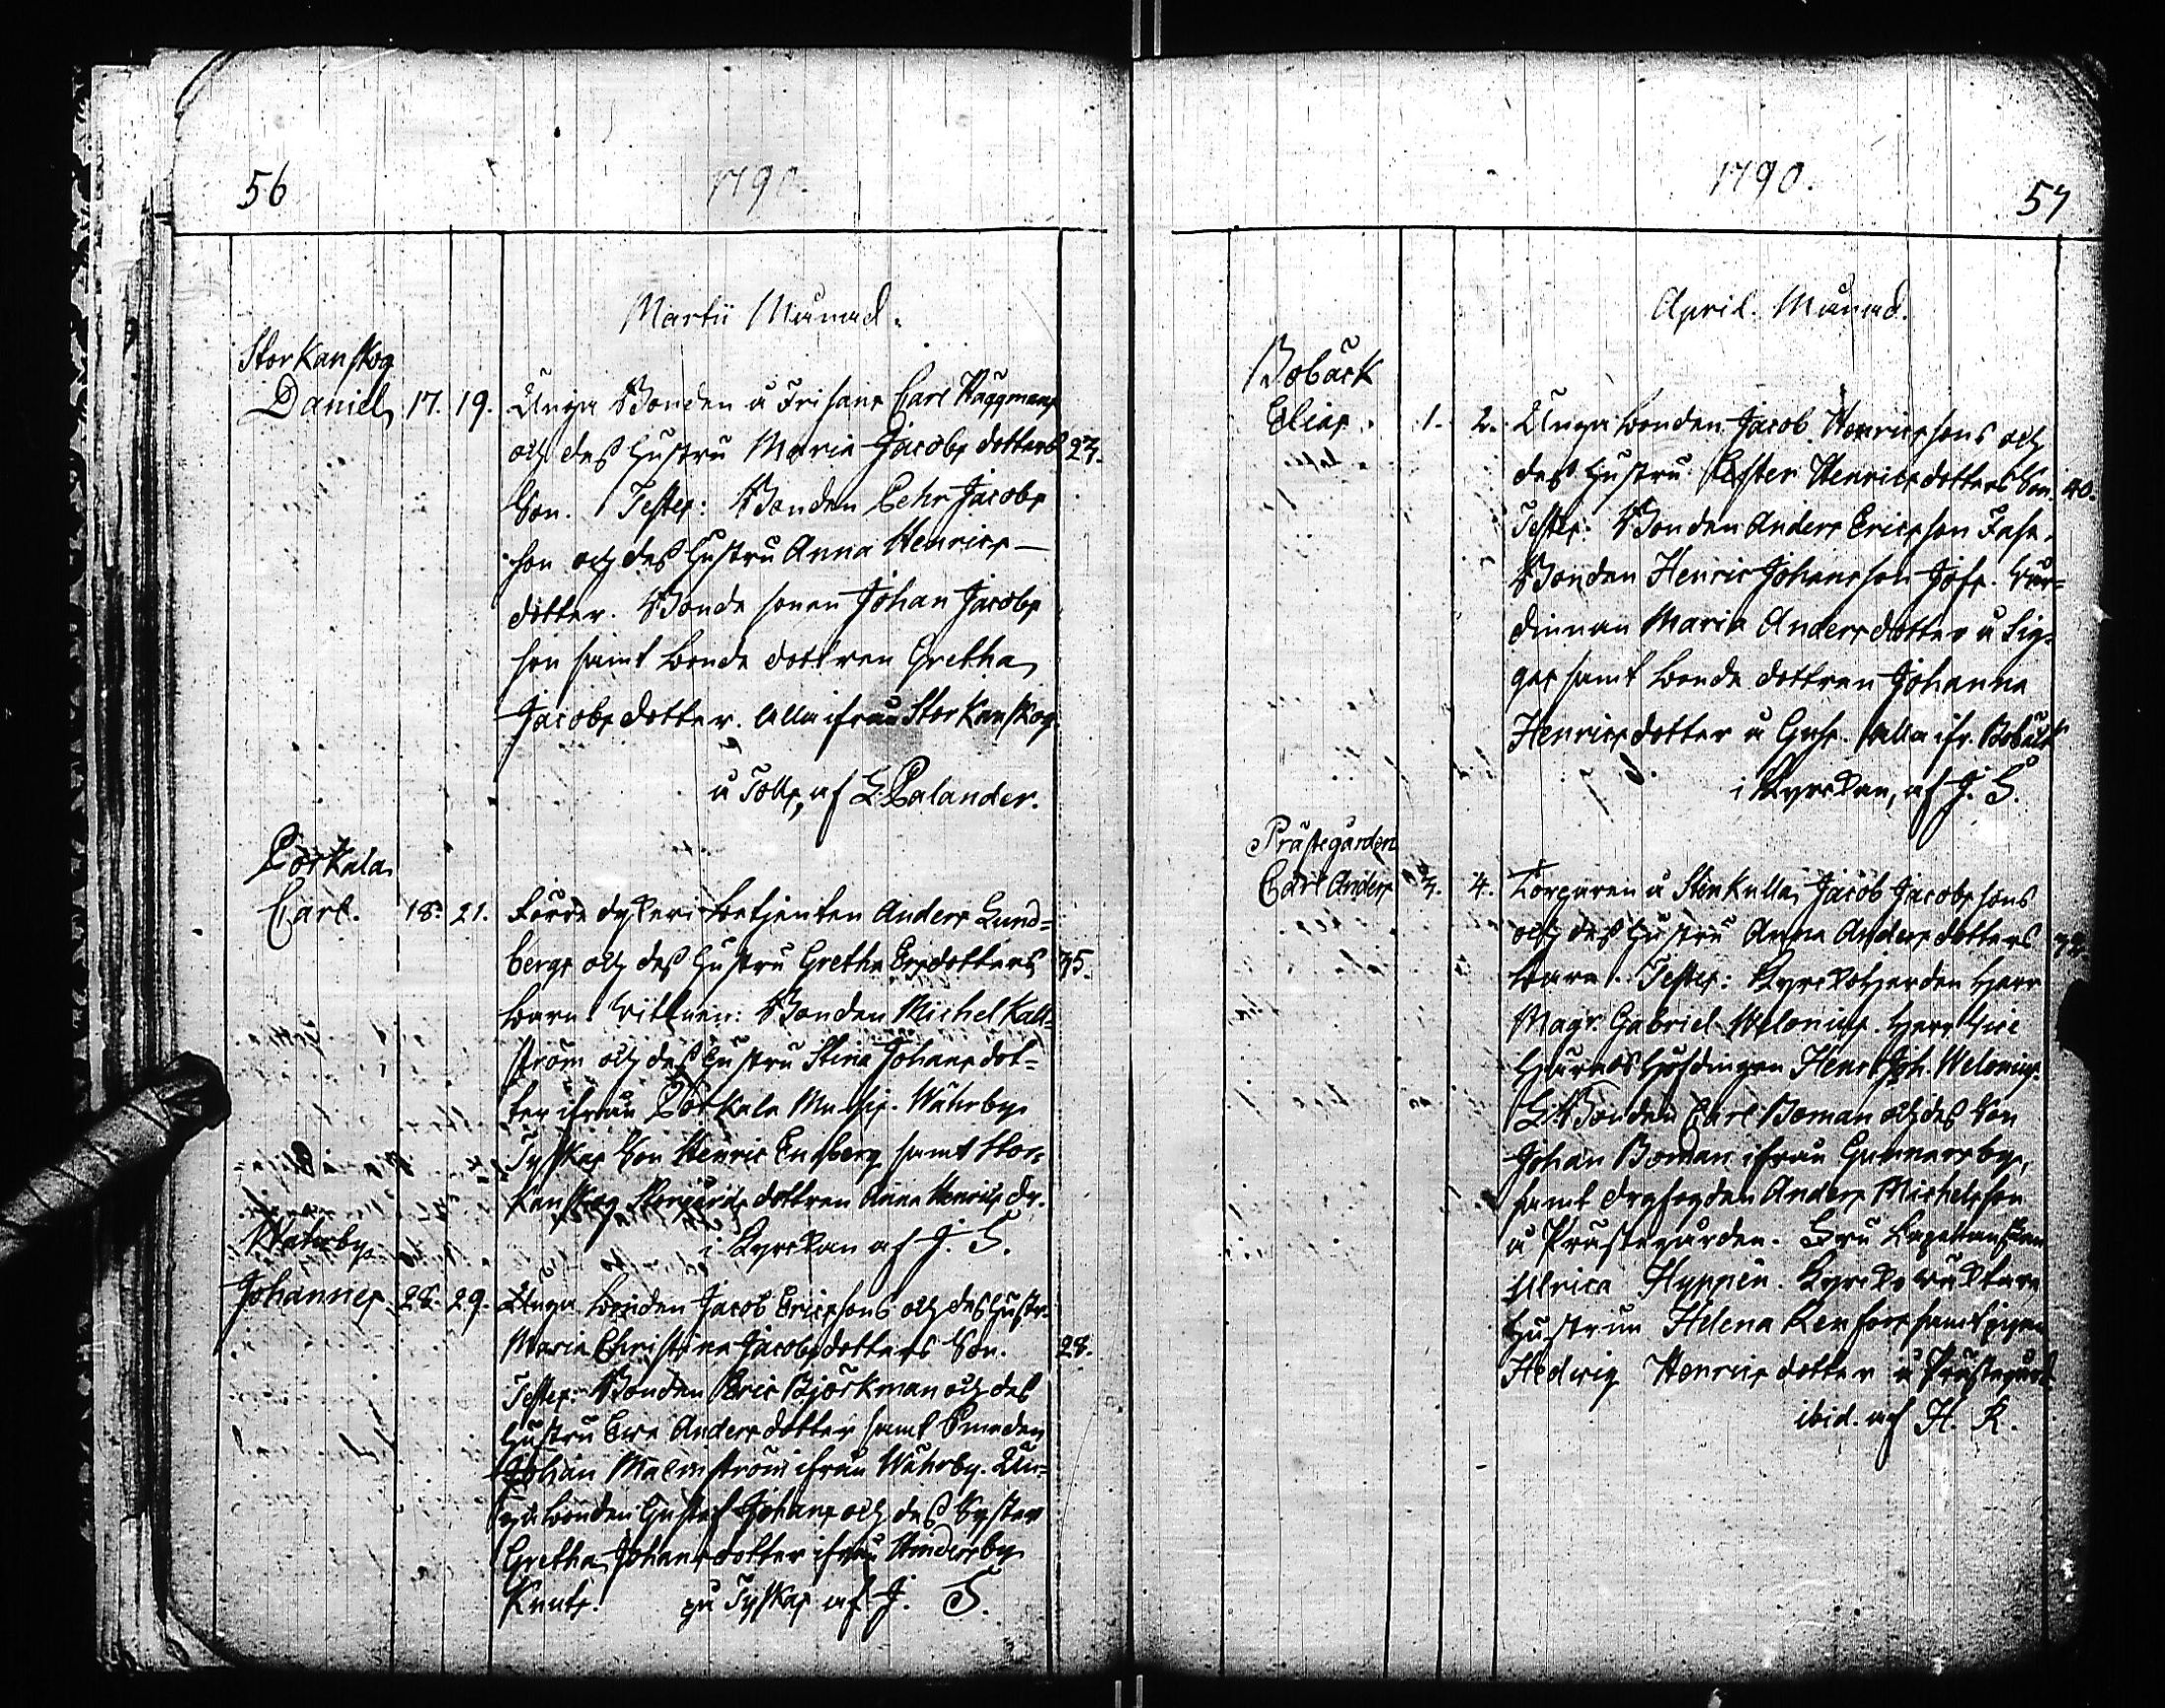 56
1790.
Martii Månad.
Storkanskog
Daniel 17. 19. Unga Bonden å Frisans Carl Häggmans
och dess hustru Maria Jacobs dotters 27.
Son. Testes: Bonden Pehr Jacobs
son och dess hustru Anna Henrics
dotter. Bonde sonen Johan Jacobs
son samt bonde dottren Gretha
Jacobs dotter. alla ifrån Storkanskog.
å Tolls, af G. Palander.
Porkala
Carl. 18. 21. betjenten Anders Lund=
bergs och dess hustru Gretha Ersdotters 35.
barn. Wittnen: Bonden Michel Käll=
ström och dess hustru Stina Johans dot=
ter ifrån Porkala Wåhrby
Tyskas Son Henric Enberg samt Stor=
kanskog dottren Anna Henrics dr.
i Kyrckan af J. S.
Wåhrby
Johannes 28. 29. Unga bonden Jacob Ericssons och dess hustr.
Maria Christina Jacobs dotters Son. 28.
Testes: Bonden Eric Björkman och dess
hustru Ewa Anders dotter samt
Johan Malmström ifrån Wåhrby. Un=
ga bonden Gustaf Johans och dess Syster
Gretha Johans dotter ifrån Hindersby
Knuts. på Tyskas af J. S.
1790.
57
April. Månad.
Bobäck
Elias. 1. 2. Unga bonden Jacob Henricssons och
dess hustru Ester Henricsdotters Son. 40.
Testes: Bonden Anders Ericsson
Bonden Henric Johansson Wär=
dinnan Maria Andersdotter å Sig=
gas samt bonde dottren Johanna
Henricsdotter å alla ifr. Bobäck
i Kyrckan, af J. S.
Prästegården
Carl Anders 3. 4. Torparen å Stenkulla Jacob Jacobssons
och dess hustru Anna Anders dotters
barn. Testes: Kyrckoherden Herr
Magr. Gabriel Welonius. Herr Vice
Häradshöfdingen Henr. Joh. Welonius.
G. Bonden Carl Boman och dess Son
Johan Boman ifrån Gunnarsby,
samt Anders Michelsson
å Prästegården. Fru
Ulrica Hyppén. Kyrcko
hustrun Helena Renfors samt pigan
Hedwig Henrics dotter å Prästegård
ibid. af H. R.